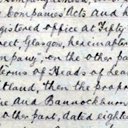 Companies Acts and h
gistered office at Fifty
reet, Glasgow, hereinafter
mpany, on the other pa
erms of Heads of Lea
tland, then the propo
e and Bannockburn
other part, dated eight